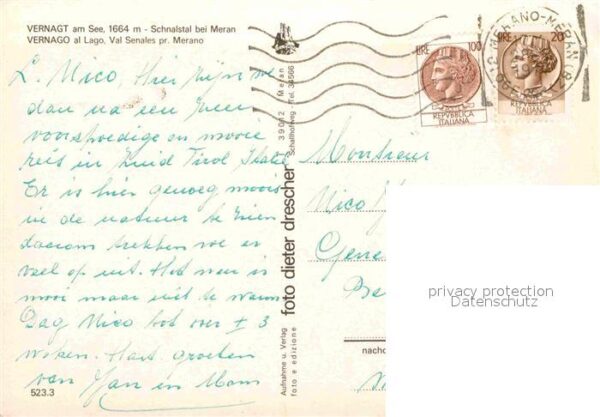 VERNAGT am See, 1664 m - Schnalstal bei Meran
VERNAGO al Lago, Val Senales pr. Merano
L. Nico, Hier zijn we
dan na een zeer
voorspoedige en mooie
reis in Zuid Tirol Italie
Er is hier genoeg moois
in de natuur te zien
daarom trekken we er
veel op uit. Het weer is
mooi maar niet te warm
Dag Nico tot over ± 3
weken. Hart. groeten
van Jan en Mam
523.3
foto dieter drescher
39012 Meran
Schallhofweg - Tel. 34566
Aufnahme u. Verlag
foto e edizione
LIRE 100
REPVBBLICA
ITALIANA
LIRE 20
REPVBBLICA
ITALIANA
MERANO-MERAN (BZ)
Monsieur
Nico
privacy protection
Datenschutz
nacho